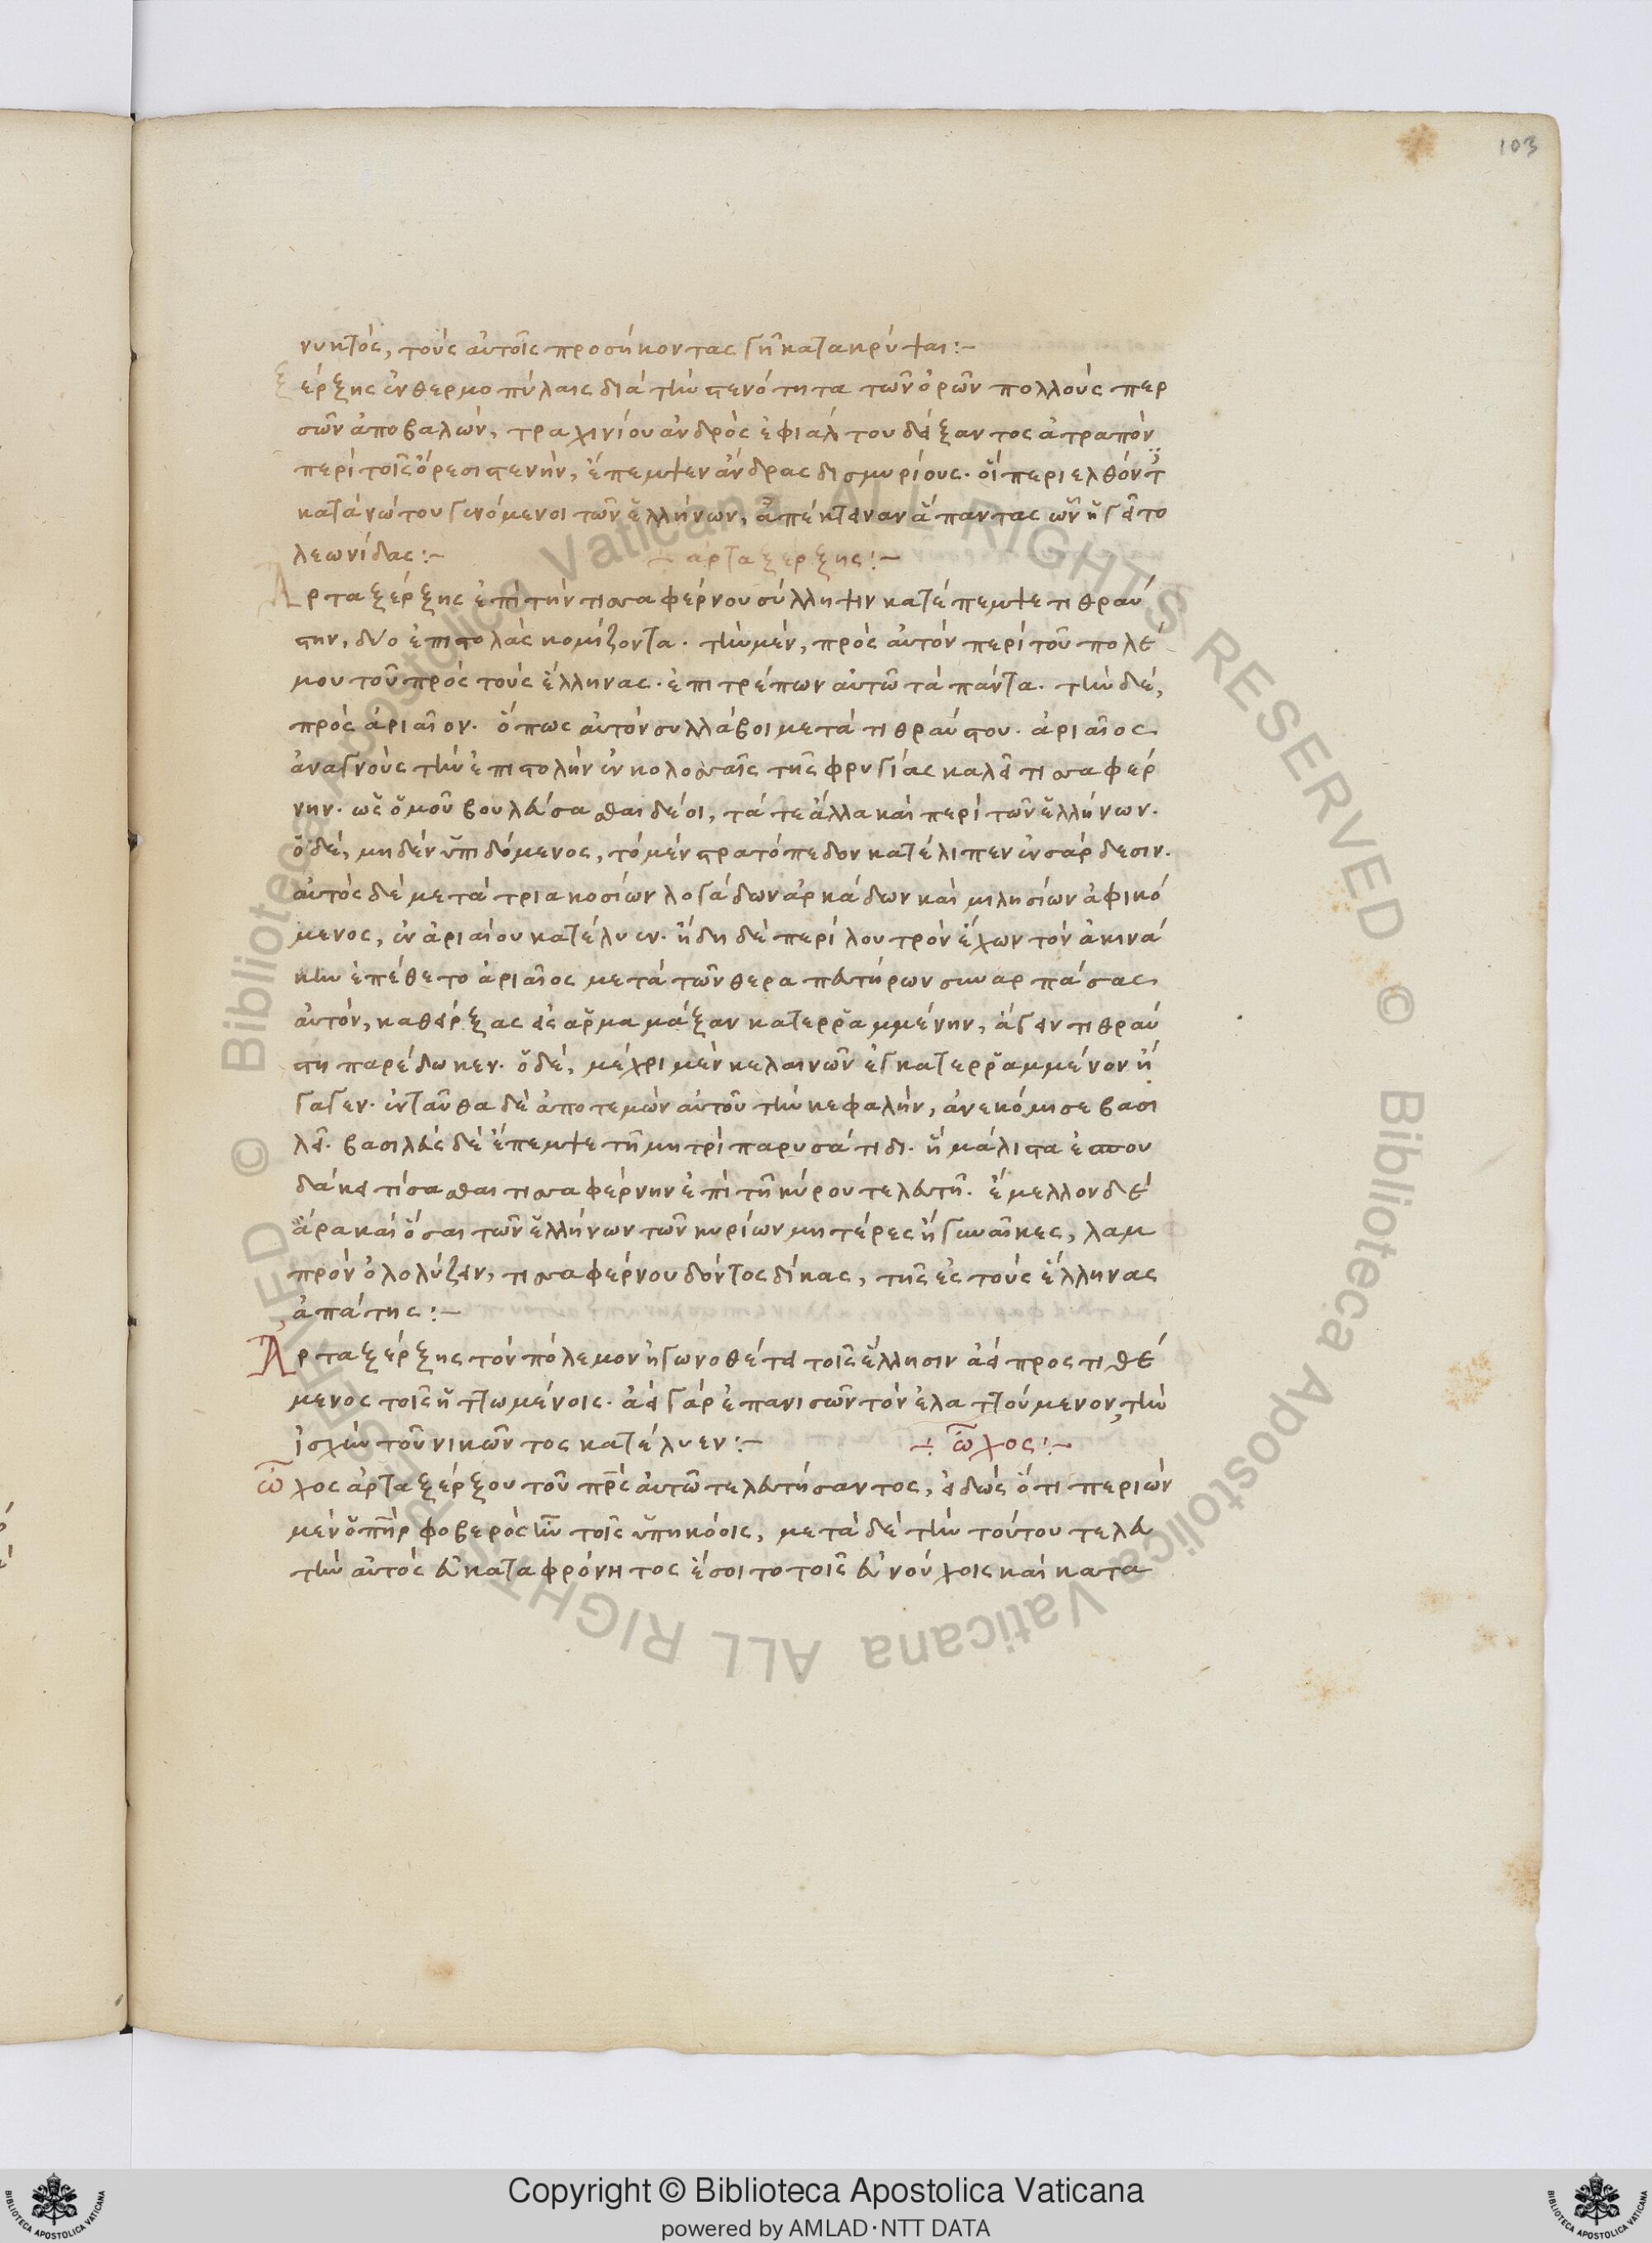 103
νυκτὸς, τοὺς αὐτοῖς προσήκοντας γῆ κατακρύψαι:-
ξέρξης ἐν θερμοπύλαις διὰ τὴν στενότητα τῶν ὀρῶν πολλοὺς περ
σῶν ἀποβαλών, τραχινίου ἀνδρὸς ἐφιάλτου δείξαντος ἀτραπὸν
περὶ τοῖς ὄρεσι στενήν, ἔπεμψεν ἄνδρας δισμυρίους. οἳ περιελθόντ
κατὰ νώτου γενόμενοι τῶν ἑλλήνων, ἀπέκτειναν ἅπαντας ὧν ἡγεῖτο
λεωνίδας:- ἀρταξέρξης:-
Ἀρταξέρξης ἐπὶ τὴν τισσαφέρνου σύλληψιν κατέπεμψε τιθραύ
στην, δύο ἐπιστολὰς κομίζοντα. τὴν μὲν, πρὸς αὐτὸν περὶ τοῦ πολέ
μου τοῦ πρὸς τοὺς ἕλληνας. ἐπιτρέπων αὐτῶ τὰ πάντα. τὴν δὲ,
πρὸς ἀριαῖον. ὅπως αὐτὸν συλλάβοι μετὰ τιθραύστου. ἀριαῖος
ἀναγνοὺς τὴν ἐπιστολὴν ἐν κολοσσαῖς τῆς φρυγίας καλεῖ τισσαφέρ
νην. ὡς ὁμοῦ βουλεύσασθαι δέοι, τά τε ἄλλα καὶ περὶ τῶν ἑλλήνων.
ὁ δὲ, μηδὲν ὑπιδόμενος, τὸ μὲν στρατόπεδον κατέλιπεν ἐν σάρδεσιν.
αὐτὸς δὲ μετὰ τριακοσίων λογάδων ἀρκάδων καὶ μιλησίων ἀφικό
μενος, ἐν ἀριαίου κατέλυεν. ἤδη δὲ περὶ λουτρὸν ἔχων τὸν ἀκινά
κην ἐπέθετο ἀριαῖος μετὰ τῶν θεραπευτήρων συναρπάσας
αὐτόν, καθείρξας εἰς ἁρμαμάξαν κατερραμμένην, ἄγειν τιθραύ
στη παρέδωκεν. ὁ δὲ, μέχρι μὲν κελαινῶν ἐγκατερραμμένον ἤ
γαγεν. ἐνταῦθα δὲ ἀποτεμὼν αὐτοῦ τὴν κεφαλὴν, ἀνεκόμησε βασι
λεῖ. βασιλεὺς δὲ ἔπεμψε τῆ μητρὶ παρυσάτιδι. ἣ μάλιστα ἐσπου
δάκει τίσασθαι τισσαφέρνην ἐπὶ τῆ κύρου τελευτῆ. ἔμελλον δὲ
ἄρα καὶ ὅσαι τῶν ἑλλήνων τῶν κυρίων μητέρες ἢ γυναῖκες, λαμ
πρὸν ὀλολύζειν, τισσαφέρνου δόντος δίκας, τῆς εἰς τοὺς ἕλληνας
ἀπάτης:-
Ἀρταξέρξης τὸν πόλεμον ἠγωνοθέτει τοῖς ἕλλησιν ἀεὶ προστιθέ
μενος τοῖς ἡττωμένοις. ἀεὶ γὰρ ἐπανισῶν τὸν ἐλαττούμενον, τὴν
ἰσχὺν τοῦ νικῶντος κατέλυεν:- ὦχος:-
ὦχος ἀρταξέρξου τοῦ πρς αὐτῶ τελευτήσαντος, εἰδὼς ὅτι περιὼν
μὲν ὁ πηρ φοβερὸς ἦν τοῖς ὑπηκόοις, μετὰ δὲ τὴν τούτου τελευ
τὴν αὐτὸς εὐκαταφρόνητος ἔσοιτο τοῖς εὐνούχοις καὶ κατα
© Biblioteca Apostolica Vaticana ALL RIGHTS RESERVED © Biblioteca Apostolica Vaticana ALL RIGHTS RESERVED
Copyright © Biblioteca Apostolica Vaticana
powered by AMLAD·NTT DATA
BIBLIOTECA APOSTOLICA VATICANA
BIBLIOTECA APOSTOLICA VATICANA